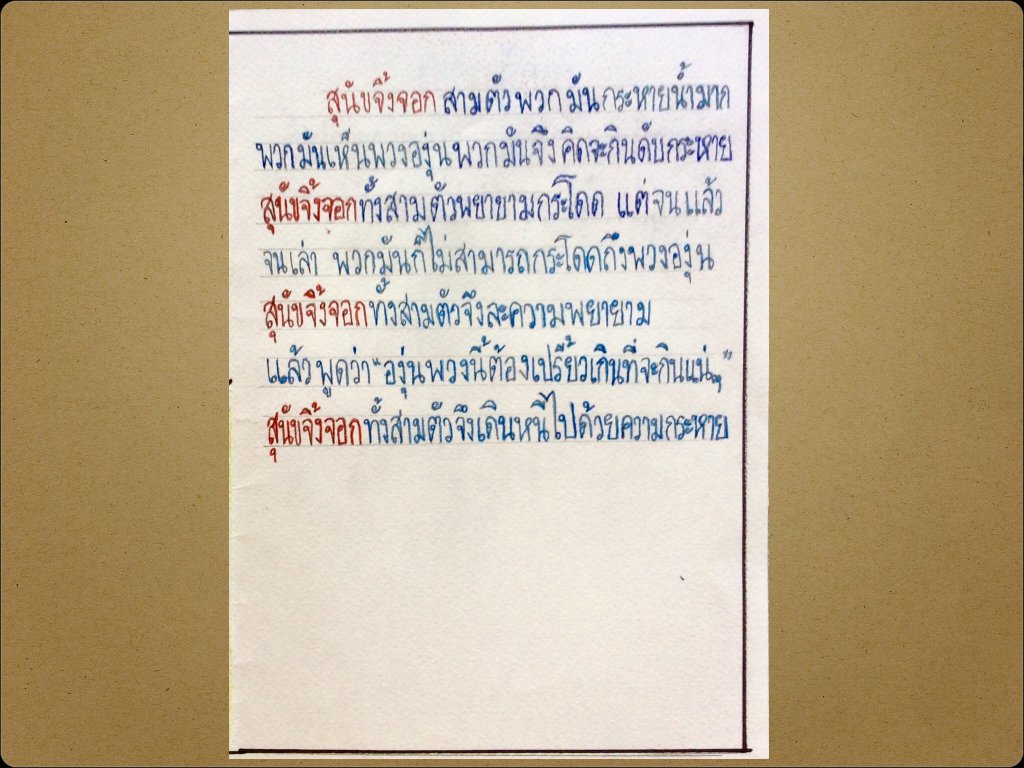 สุนัขจิ้งจอก สามตัวพวกมันกระหายน้ำมาก
พวกมันเห็นพวงองุ่นพวกมันจึงคิดจะกินดับกระหาย
สุนัขจิ้งจอกทั้งสามตัวพยายามกระโดด แต่จนแล้ว
จนเล่า พวกมันก็ไม่สามารถกระโดดถึงพวงองุ่น
สุนัขจิ้งจอกทั้งสามตัวจึงละความพยายาม
แล้วพูดว่า "องุ่นพวงนี้ต้องเปรี้ยวเกินที่จะกินแน่ๆ"
สุนัขจิ้งจอกทั้งสามตัวจึงเดินหนีไปด้วยความกระหาย